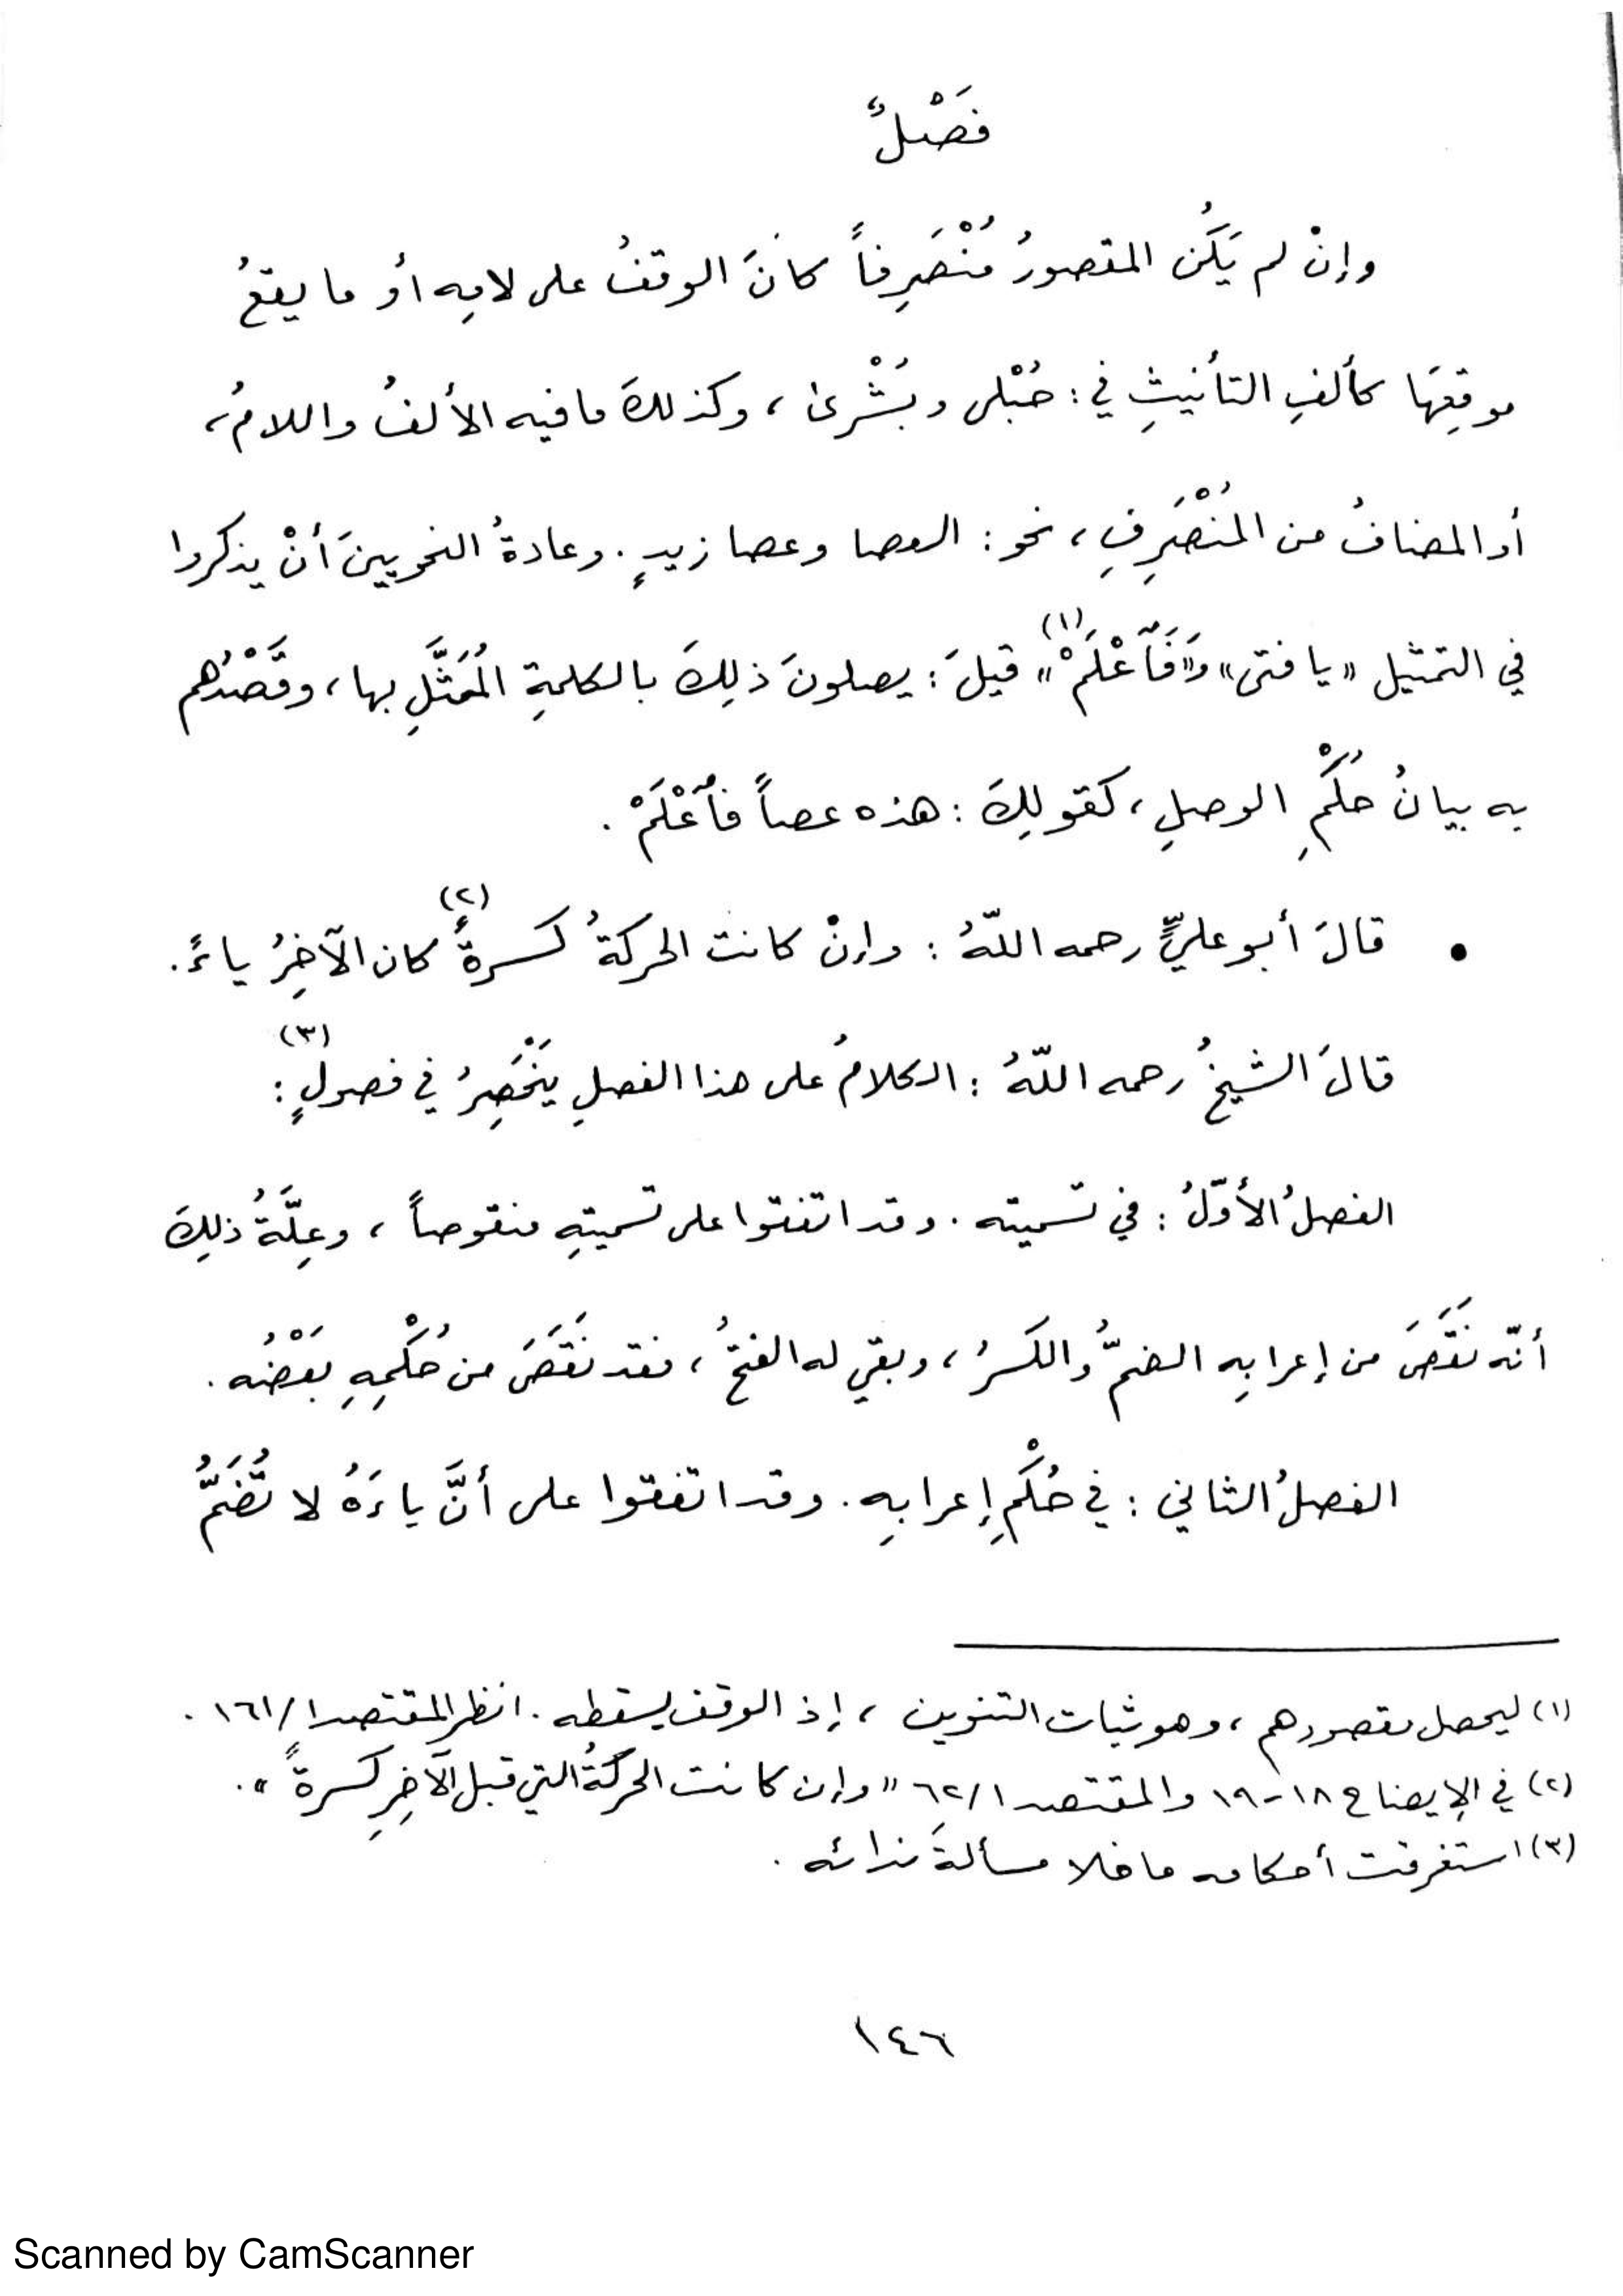 فَصْلٌ
وإنْ لم يَكُن المقصورُ مُنْصَرِفاً كانَ الوقفُ على لامِه أو ما يقعُ
موقِعَها كألفِ التأنيثِ في: حُبْلى وبُشْرىٰ، وكذلكَ ما فيه الألفُ واللامُ،
أو المضافُ من المُنْصَرِفِ، نحو: العصا وعصا زيدٍ. وعادةُ النحويينَ أنْ يذكروا
في التمثيل «يا فتى» وَ«فَآعْلَمْ»(١) قيلَ: يصلونَ ذلِكَ بالكلمةِ المُمَثَّلِ بها، وقَصْدُهم
به بيانُ حُكْمِ الوصلِ، كقولِكَ: هذه عصاً فآعْلَمْ.
• قالَ أبو عليٍّ رحمه اللّهُ: وإنْ كانت الحركةُ كسرةً(٢) كان الآخِرُ ياءً.
قالَ الشيخُ رحمه اللّهُ: الكلامُ على هذا الفصلِ يَنْحَصِرُ في فصولٍ(٣):
الفصلُ الأوّلُ: في تسميته. وقد اتفقوا على تسميتِهِ منقوصاً، وعِلَّةُ ذلِكَ
أنّه نَقَصَ من إعرابِه الضمُّ والكسرُ، وبقي له الفتحُ، فقد نَقَصَ من حُكْمِهِ بَعْضُه.
الفصلُ الثاني: في حُكْمِ إعرابِهِ. وقد اتفقوا على أنَّ ياءَهُ لا تُضَمُّ
(١) ليحصل مقصودهم، وهو ثبات التنوين، إذ الوقف يسقطه. انظر المقتصد ١/١٦١.
(٢) في الإيضاح ١٨-١٩ والمقتصد ١/٦٢ "وإن كانت الحركةُ التي قبل الآخِرِ كسرةً".
(٣) استغرقت أحكامه ما خلا مسألةَ ندائه.
١٤٦
Scanned by CamScanner